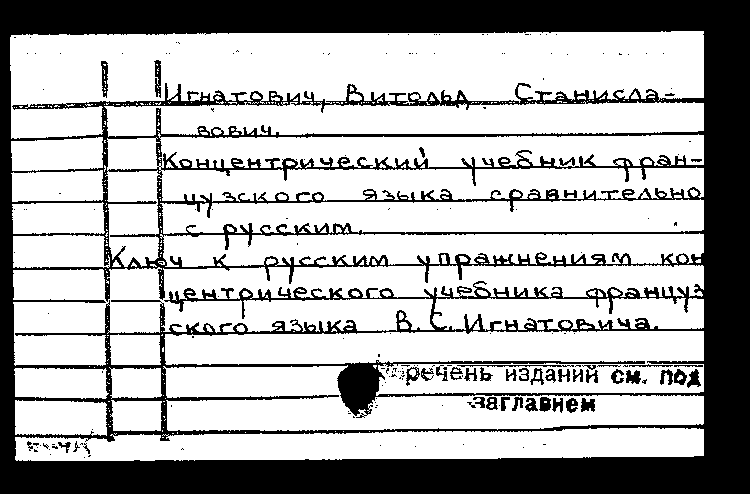 Игнатович, Витольд Станисла-
вович.
Концентрический учебник фран-
цузского языка сравнительно
с русским.
Ключ к русским упражнениям кон
центрического учебника француз
ского языка В. С. Игнатовича.
Перечень изданий см. под
заглавием